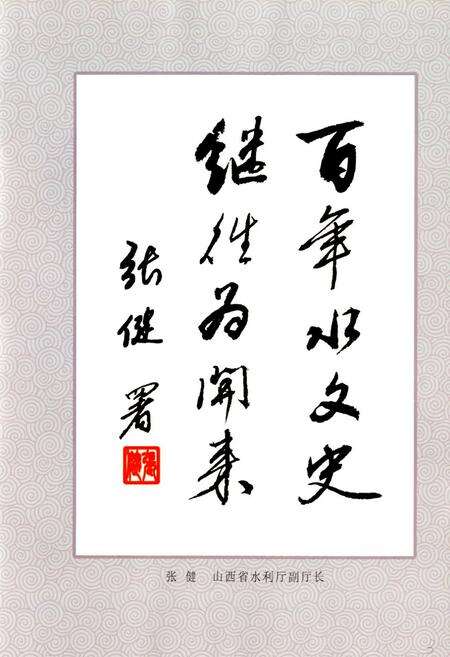 百年水文史
继往为開来
张健 署
张 健 山西省水利厅副厅长